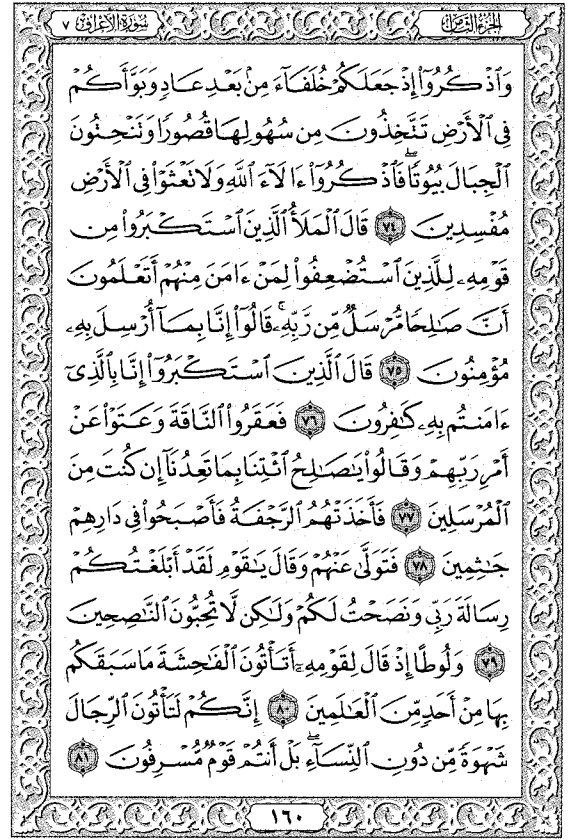 الجزء الثامن سورة الأعراف ٧
وَٱذْكُرُوٓا۟ إِذْ جَعَلَكُمْ خُلَفَآءَ مِنۢ بَعْدِ عَادٍ وَبَوَّأَكُمْ
فِى ٱلْأَرْضِ تَتَّخِذُونَ مِن سُهُولِهَا قُصُورًا وَتَنْحِتُونَ
ٱلْجِبَالَ بُيُوتًا ۖ فَٱذْكُرُوٓا۟ ءَالَآءَ ٱللَّهِ وَلَا تَعْثَوْا۟ فِى ٱلْأَرْضِ
مُفْسِدِينَ ٧٤ قَالَ ٱلْمَلَأُ ٱلَّذِينَ ٱسْتَكْبَرُوا۟ مِن
قَوْمِهِۦ لِلَّذِينَ ٱسْتُضْعِفُوا۟ لِمَنْ ءَامَنَ مِنْهُمْ أَتَعْلَمُونَ
أَنَّ صَٰلِحًا مُّرْسَلٌ مِّن رَّبِّهِۦ ۚ قَالُوٓا۟ إِنَّا بِمَآ أُرْسِلَ بِهِۦ
مُؤْمِنُونَ ٧٥ قَالَ ٱلَّذِينَ ٱسْتَكْبَرُوٓا۟ إِنَّا بِٱلَّذِىٓ
ءَامَنتُم بِهِۦ كَٰفِرُونَ ٧٦ فَعَقَرُوا۟ ٱلنَّاقَةَ وَعَتَوْا۟ عَنْ
أَمْرِ رَبِّهِمْ وَقَالُوا۟ يَٰصَٰلِحُ ٱئْتِنَا بِمَا تَعِدُنَآ إِن كُنتَ مِنَ
ٱلْمُرْسَلِينَ ٧٧ فَأَخَذَتْهُمُ ٱلرَّجْفَةُ فَأَصْبَحُوا۟ فِى دَارِهِمْ
جَٰثِمِينَ ٧٨ فَتَوَلَّىٰ عَنْهُمْ وَقَالَ يَٰقَوْمِ لَقَدْ أَبْلَغْتُكُمْ
رِسَالَةَ رَبِّى وَنَصَحْتُ لَكُمْ وَلَٰكِن لَّا تُحِبُّونَ ٱلنَّٰصِحِينَ
٧٩ وَلُوطًا إِذْ قَالَ لِقَوْمِهِۦٓ أَتَأْتُونَ ٱلْفَٰحِشَةَ مَا سَبَقَكُم
بِهَا مِنْ أَحَدٍ مِّنَ ٱلْعَٰلَمِينَ ٨٠ إِنَّكُمْ لَتَأْتُونَ ٱلرِّجَالَ
شَهْوَةً مِّن دُونِ ٱلنِّسَآءِ ۚ بَلْ أَنتُمْ قَوْمٌ مُّسْرِفُونَ ٨١
١٦٠